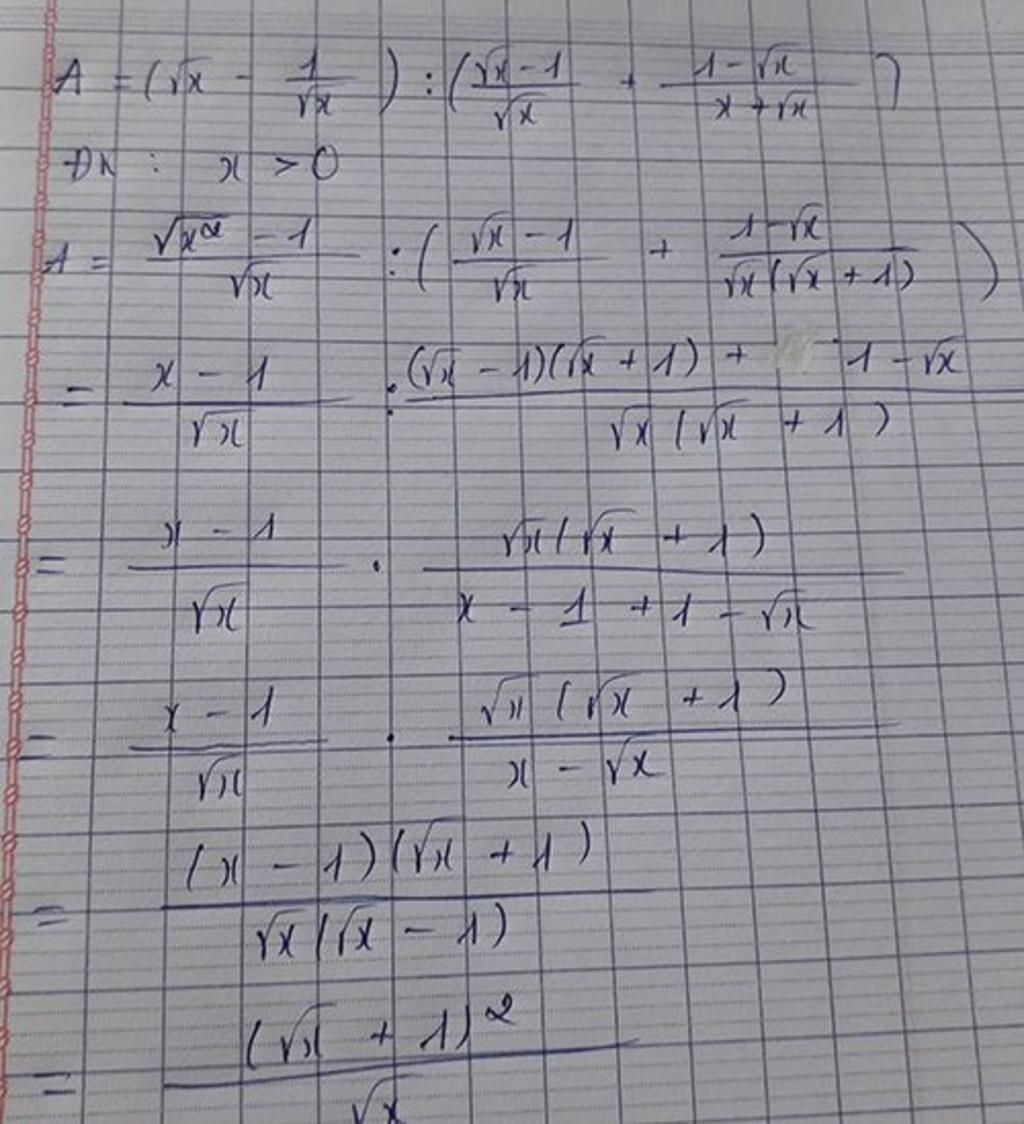 A = (√x - 1/√x) : (√x - 1/√x + 1 - √x/x + √x)
ĐK : x > 0
A = √x² - 1/√x : (√x - 1/√x + 1 - √x/√x(√x + 1))
= x - 1/√x : (√x - 1)(√x + 1) + 1 - √x/√x(√x + 1)
= x - 1/√x . √x(√x + 1)/x - 1 + 1 - √x
= x - 1/√x . √x(√x + 1)/x - √x
= (x - 1)(√x + 1)/√x(√x - 1)
= (√x + 1)²/√x